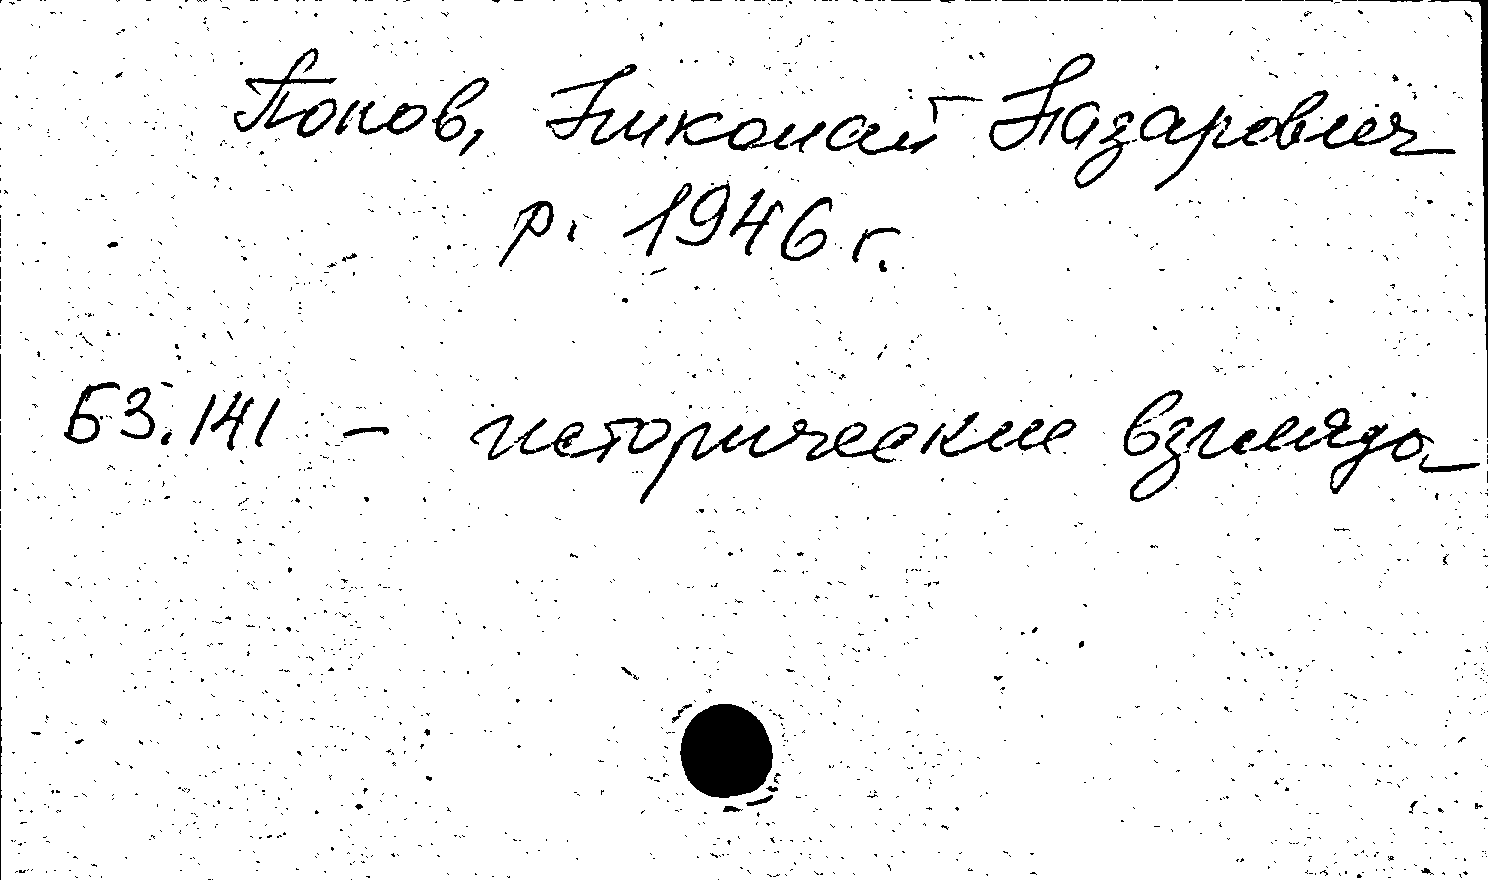 Попов, Николай Назарович
р. 1946 г.
Б3.141 – исторические взгляды